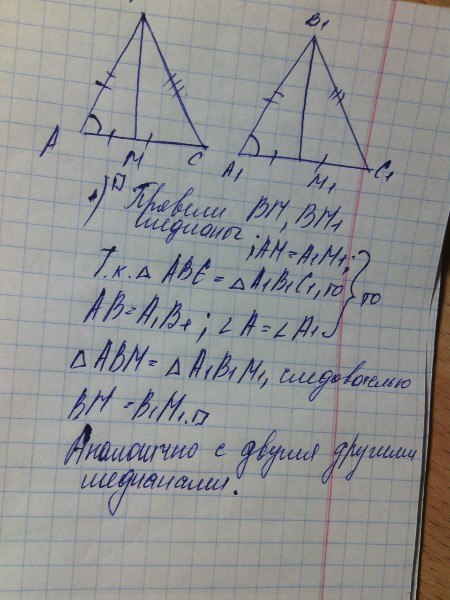 B1
A
M
C
A1
M1
C1
1) □ Провели BM, BM1
медианы ; AM = A1M1;
Т.к. △ ABC = △ A1B1C1, то
AB = A1B1; ∠A = ∠A1
} то
△ ABM = △ A1B1M1, следовательно
BM = B1M1. □
Аналогично с двумя другими
медианами.